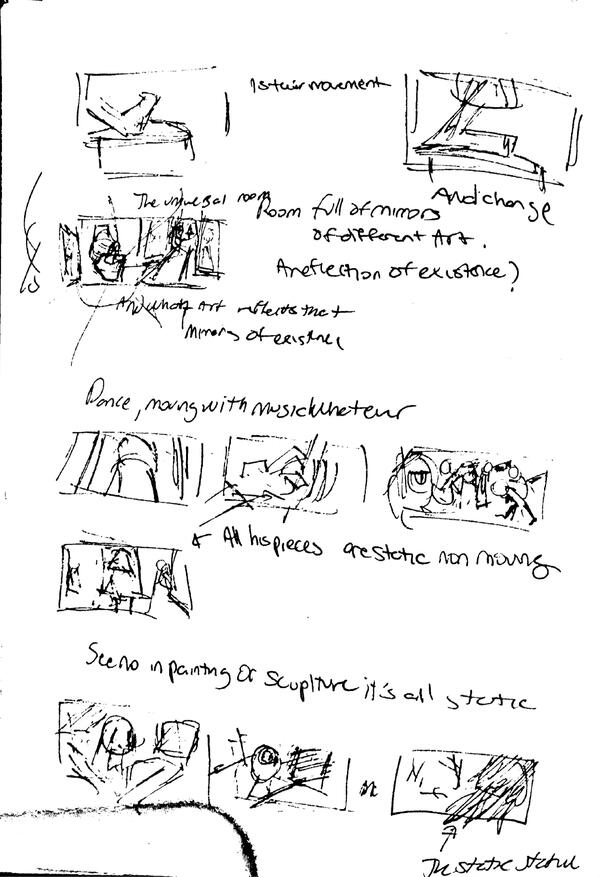 movement
And change
The universal room
Room full of mirrors
of different Art.
A reflection of existence?
And what Art reflects that
Mirrors of existence
Dance, moving with music whatever
All his pieces are static non moving
See no in painting or sculpture it's all static
or
The static statue